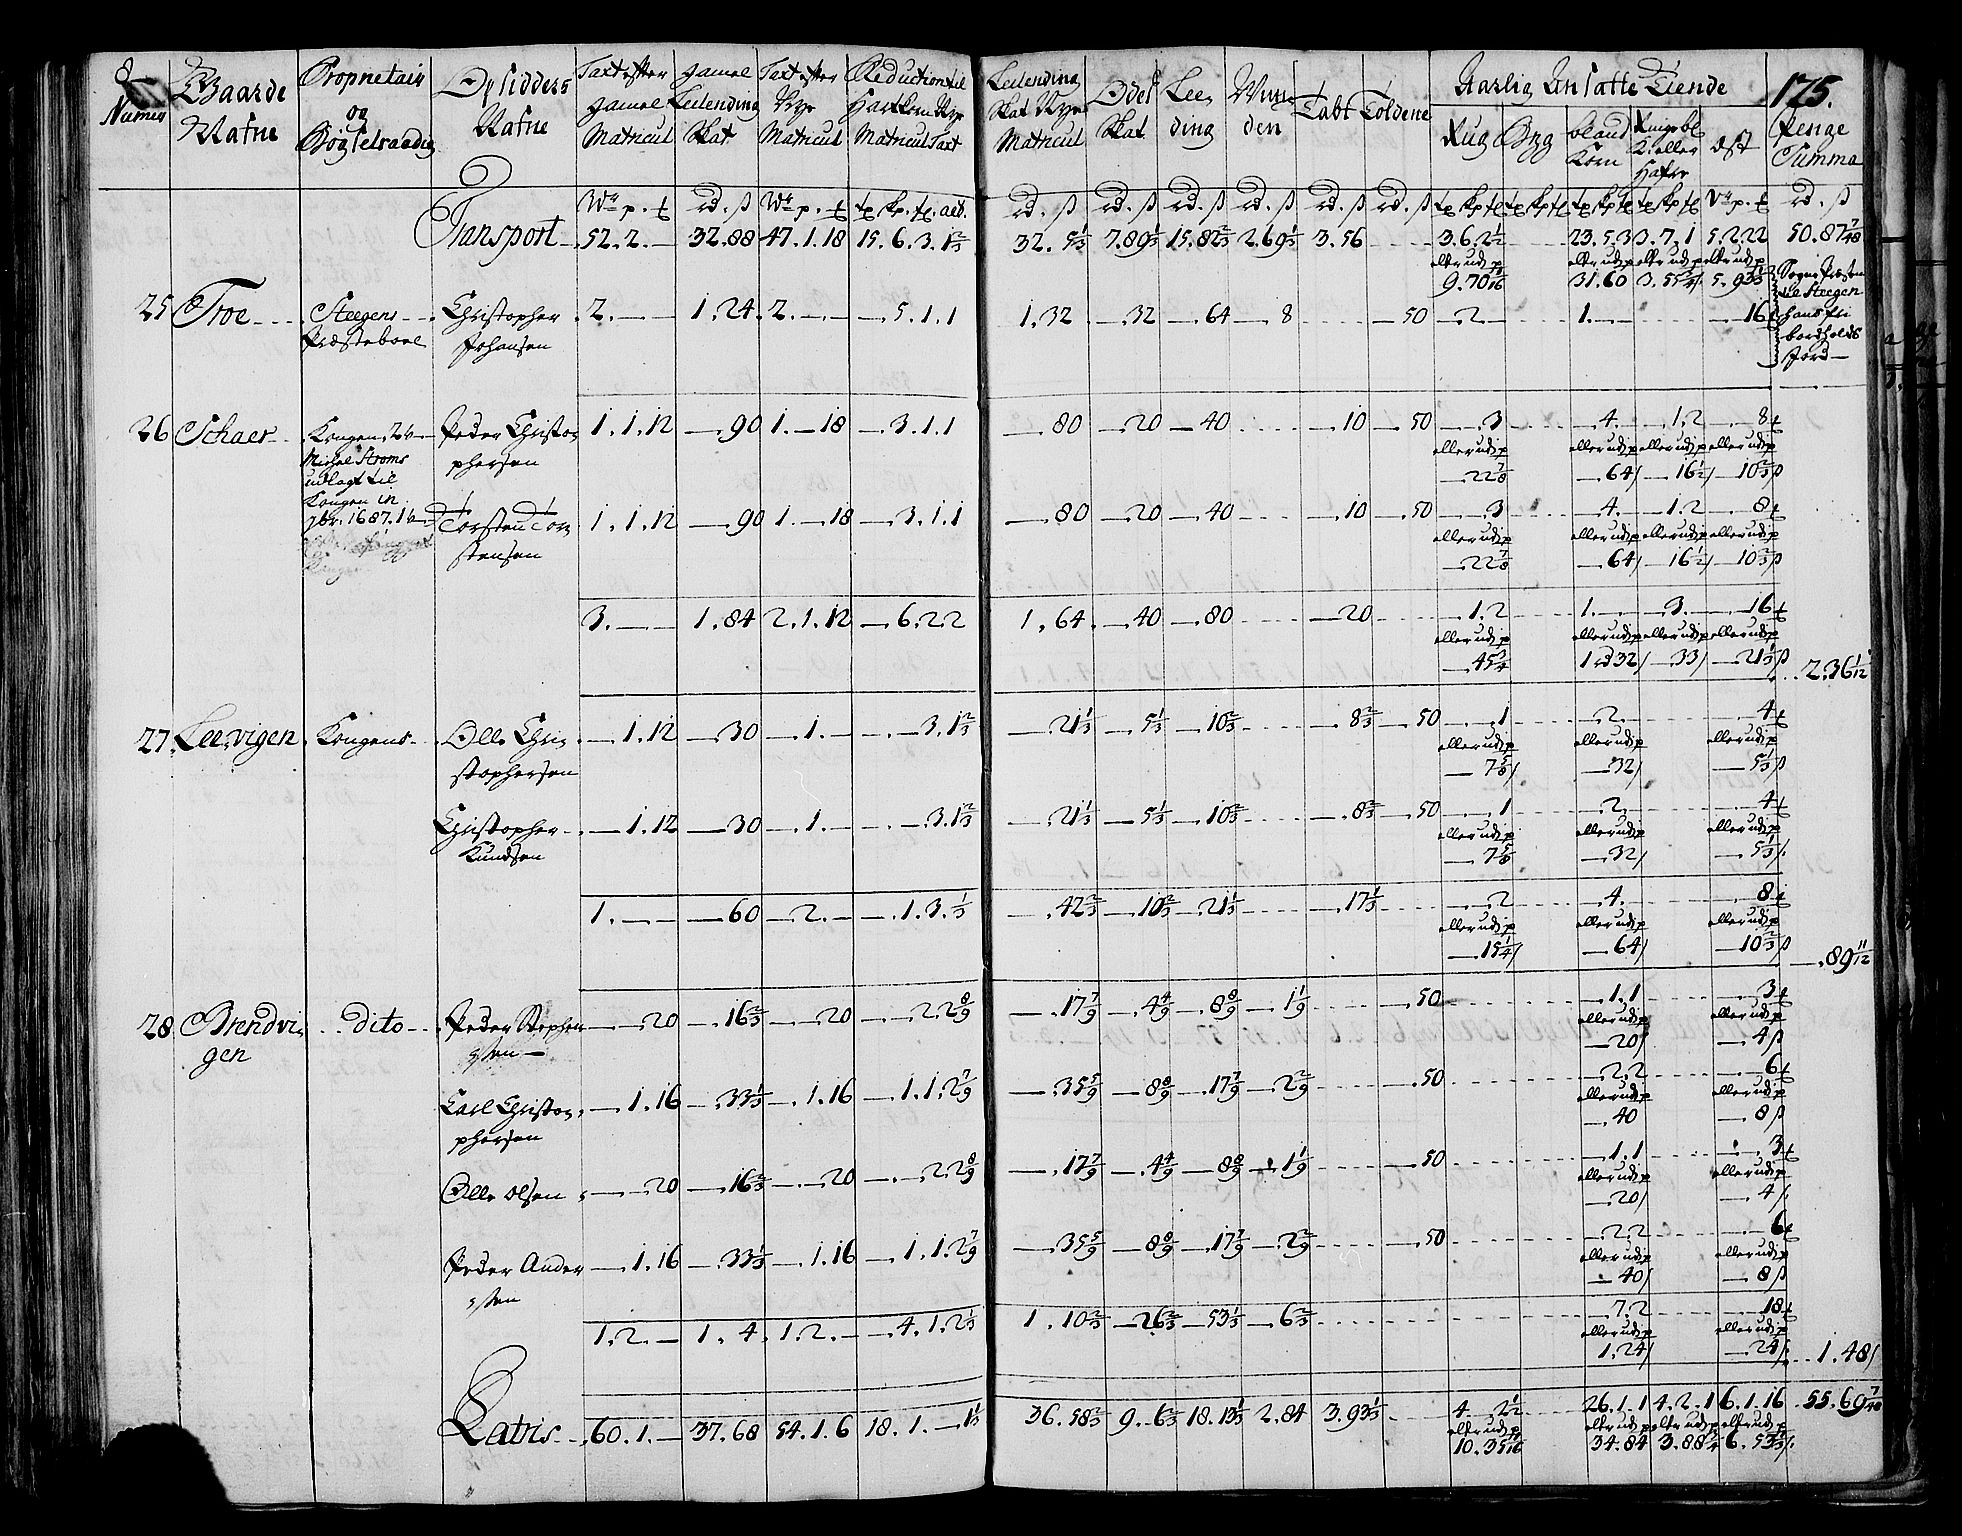 8 Gaarde Proprietair Opsidders Taxt efter gamel Taxt efter Reduction til Leilending Odel Lee, Wun, Aarlig Ansatte Tiende 175.
Numer Nafne og Nafne gamel Leilending Nye Hartkorn Nye Skat Nye Skat ding den Tabt Toldene Rug Byg bland Penge
Bøgselraadig Matricul Skat Matricul Matricul Taxt Matricul Korn Hafre ost Summa
Transport 52.2.— 32.88 47.1.18 15.6.3.1⅔ 32.5⅓ 7.89⅓ 15.82⅔ 2.69⅓ 3.56 3.6.2½ 23.5.3 3.7.1 5.2.22 50.87 7/48
9.70 31.60 3.55 5.93⅓
25 Troe Steegens Christopher 2.— 1.24 2.— 5.1.1 1.32 32 64 8 50 2 1. 16 til Steegen
Præsteboel Johansen Jord
26 Schaer Kongens Peder Christo, 1.1.12 90 1.—18 3.1.1 80 20 40 10 50 3 4. 1.2 8
Michel Stroms phersen eller udj eller udj eller udj eller udj
udlagt til 22⅞ 64 16½ 10⅔ ß
Kongen in
1687. Torsten Tor, 1.1.12 90 1.—18 3.1.1 80 20 40 10 50 3 4. 1.2 8
stensen eller udj eller udj eller udj eller udj
22⅞ 64 16½ 10⅔ ß
3.— 1.84 2.1.12 6.2.2 1.64 40 80 20 1.2 1. 3. 16
eller udj eller udj eller udj eller udj
45¾ 1 rd 32 33 21⅓ ß 2.36 1/12
27 Lee,vigen Kongens Olle Chri, 1.12 30 1. 3.1⅔ 21⅓ 5⅓ 10⅔ 8⅔ 50 1 2. 4
stophersen eller udj eller udj eller udj
7⅝ 32 5⅓ ß
Christopher 1.12 30 1. 3.1⅔ 21⅓ 5⅓ 10⅔ 8⅔ 50 1 2. 4
Knudsen eller udj eller udj eller udj
7⅝ 32 5⅓
1.— 60 2. 1.3.⅓ 42⅔ 10⅔ 21⅓ 17⅓ 2 4. 8
eller udj eller udj eller udj
15¼ 64 10⅔ ß 89 11/12
28 Brendvi, dito Peder Stephen 20 16⅔ 20 2.2 8/9 17 7/9 4 4/9 8 8/9 1 1/9 50 1.1 3
gen sen eller udj eller udj
20 4 ß
Carl Christo, 1.16 33⅓ 1.16 1.1.2 7/9 35 5/9 8 8/9 17 7/9 2 2/9 50 2.2 6
phersen eller udj eller udj
40 8 ß
Olle olsen 20 16⅔ 20 2.2 8/9 17 7/9 4 4/9 8 8/9 1 1/9 50 1.1 3
eller udj eller udj
20 4
Peder Ander 1.16 33⅓ 1.16 1.1.2 7/9 35 5/9 8 8/9 17 7/9 2 2/9 50 2.2 6
sen eller udj eller udj
40 8 ß
1.2.— 1.4. 1.2.— 4.1.2⅓ 1.10⅔ 26⅔ 53⅓ 6⅔ 7.2 18
eller udj eller udj
1.24 24 1.48
Latris 60.1.— 37.68 54.1.6 18.1.—1⅓ 36.58⅔ 9.6⅔ 18.13⅓ 2.84 3.93⅓ 4.—2½ 26.1.1 4.2.1 6.1.16 55.69
10.35 34.84 3.88 6.53⅓